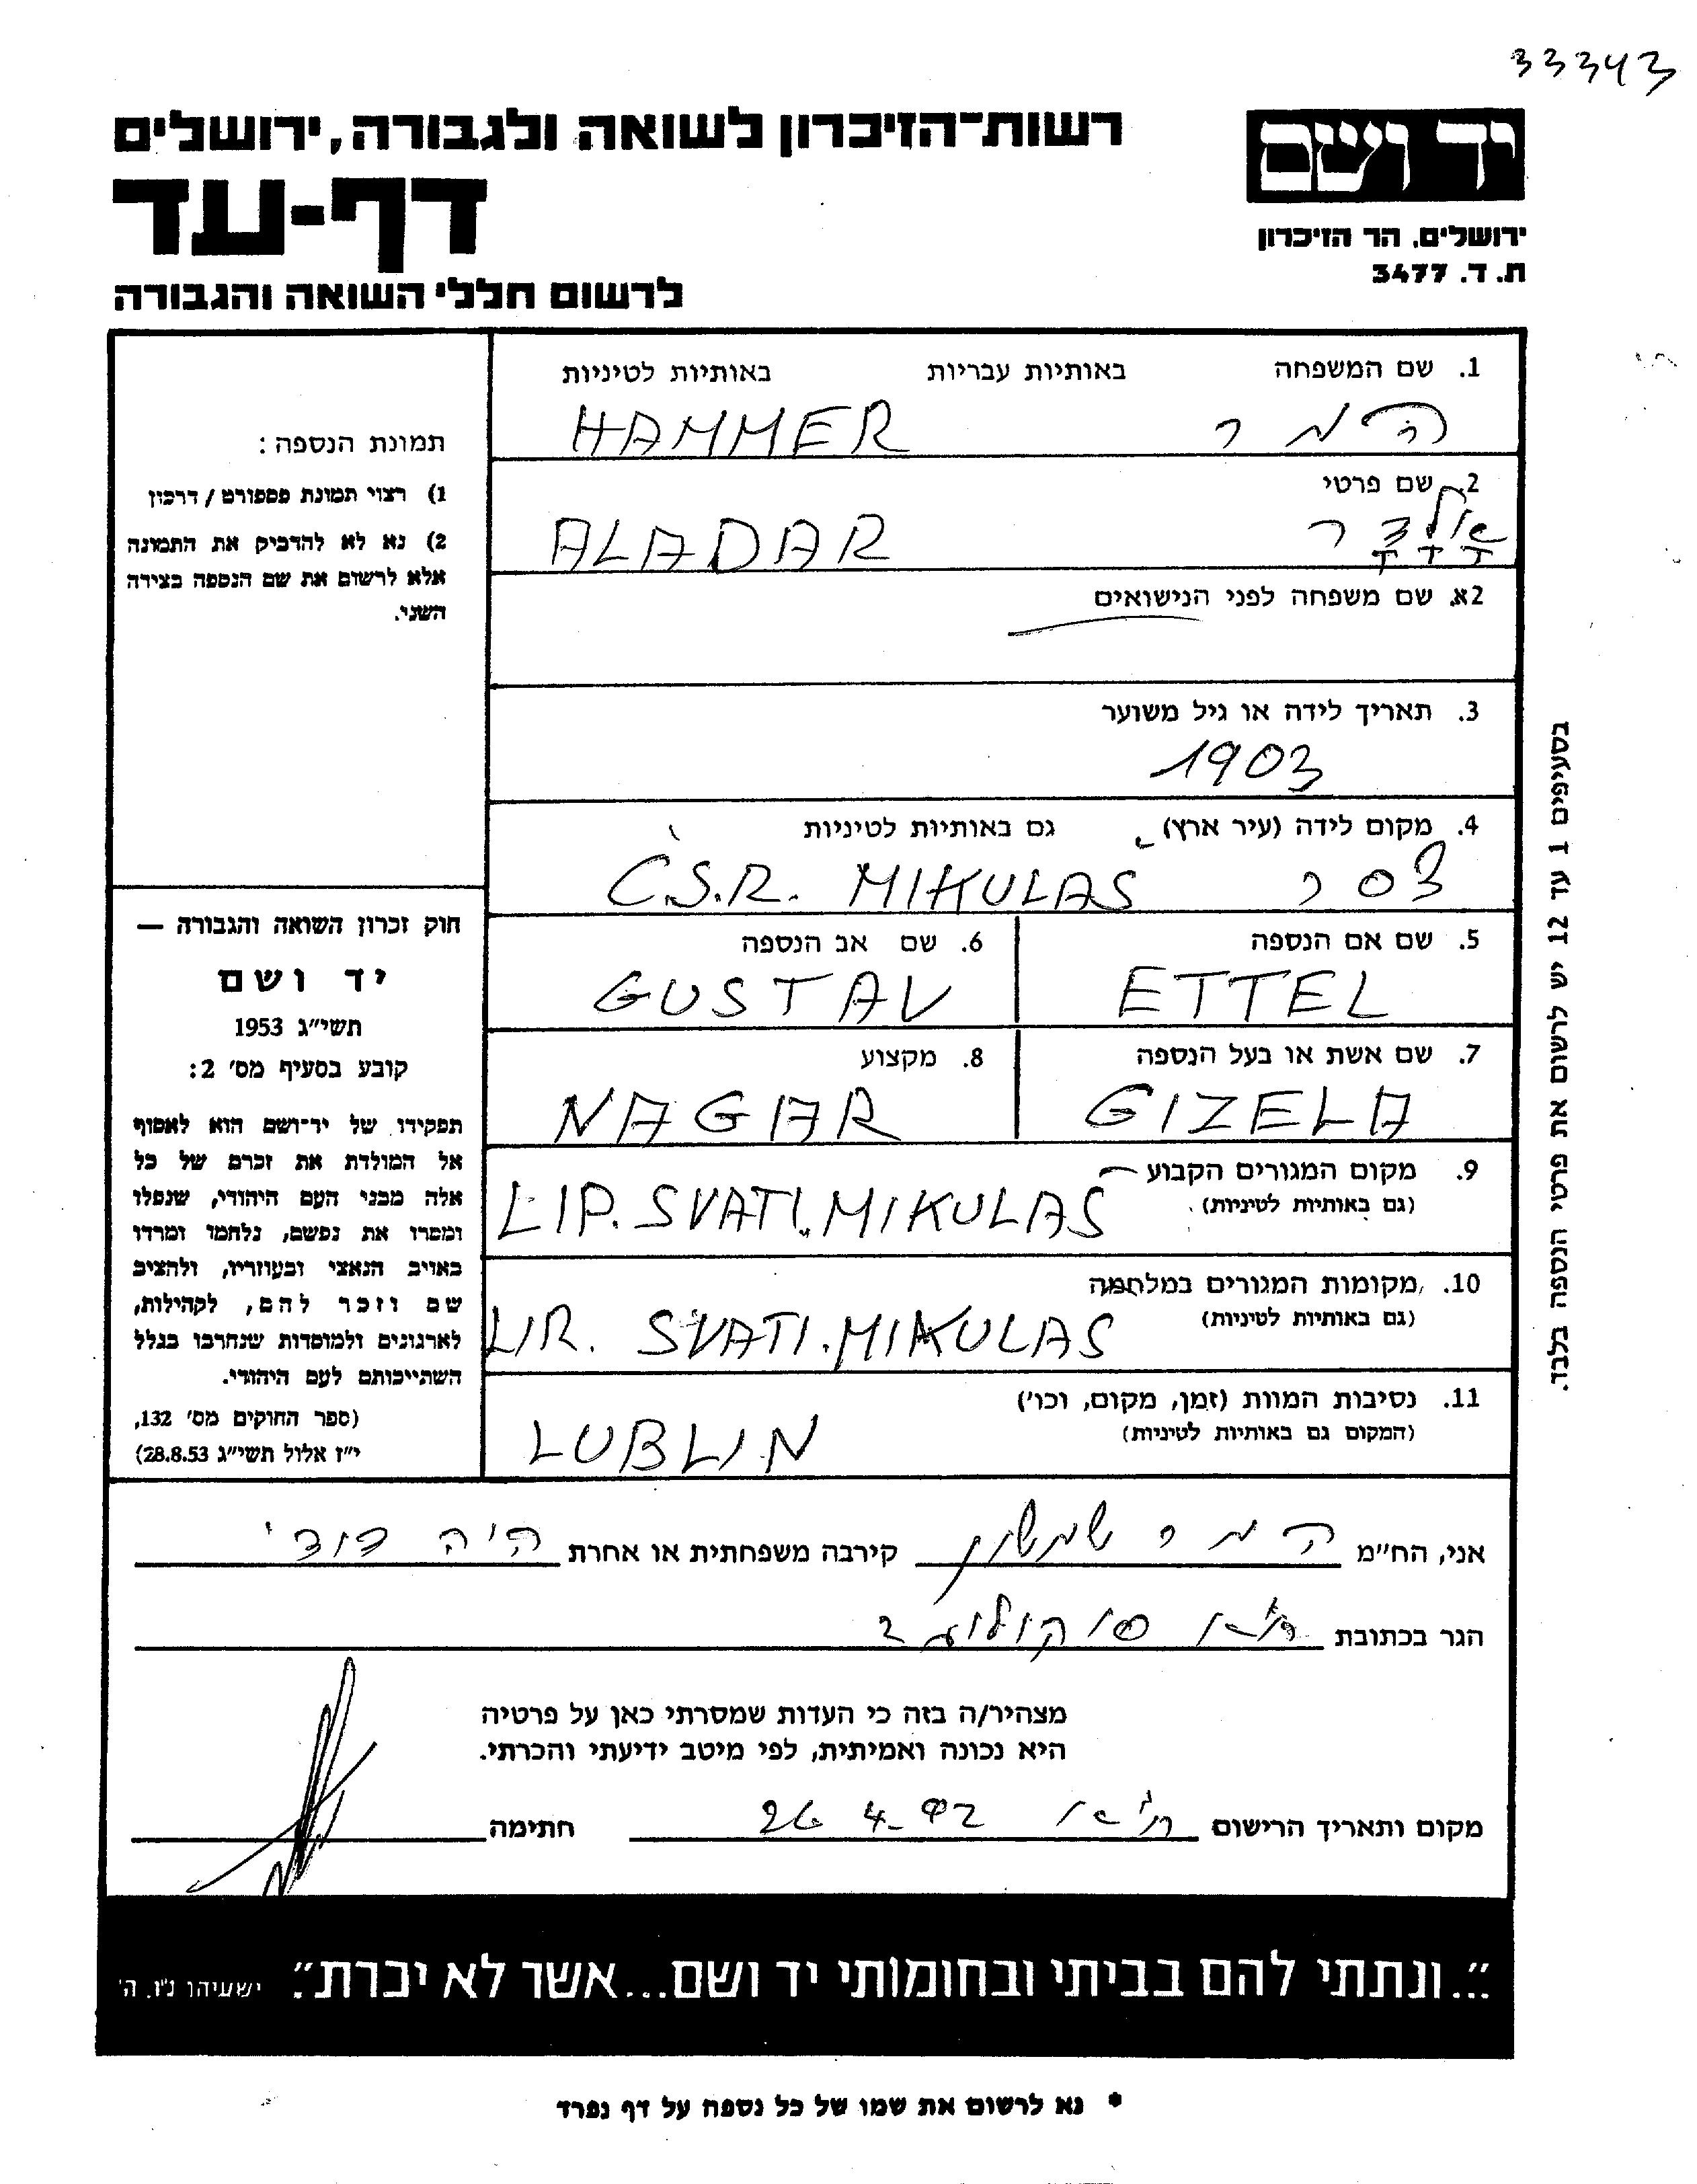 33343
רשות־הזיכרון לשואה ולגבורה, ירושלים
יד ושם
דף-עד
ירושלים. הר הזיכרון
ת. ד. 3477
לרשום חללי השואה והגבורה
1. שם המשפחה באותיות עבריות באותיות לטיניות
המר HAMMER
2. שם פרטי
ALADAR
2א. שם משפחה לפני הנישואים
3. תאריך לידה או גיל משוער
1903
4. מקום לידה (עיר ארץ) גם באותיות לטיניות
צסר Č.S.R. MIKULAŠ
5. שם אם הנספה
ETTEL
6. שם אב הנספה
GUSTAV
7. שם אשת או בעל הנספה
GIZELA
8. מקצוע
NAGAR
9. מקום המגורים הקבוע
(גם באותיות לטיניות)
LIP. SVATI. MIKULAS
10. מקומות המגורים במלחמה
(גם באותיות לטיניות)
LIP. SVATI. MIKULAS
11. נסיבות המוות (זמן, מקום, וכו')
(המקום גם באותיות לטיניות)
LUBLIN
תמונת הנספה:
1) רצוי תמונת פספורט / דרכון
2) נא לא להדביק את התמונה
אלא לרשום את שם הנספה בצידה
השני.
חוק זכרון השואה והגבורה —
יד ושם
תשי״ג 1953
קובע בסעיף מס׳ 2:
תפקידו של יד־ושם הוא לאסוף
אל המולדת את זכרם של כל
אלה מבני העם היהודי, שנפלו
ומסרו את נפשם, נלחמו ומרדו
באויב הנאצי ובעוזריו, ולהציב
שם וזכר להם, לקהילות,
לארגונים ולמוסדות שנחרבו בגלל
השתייכותם לעם היהודי.
(ספר החוקים מס׳ 132,
י״ז אלול תשי״ג 28.8.53)
בסעיפים 1 עד 12 יש לרשום את פרטי הנספה בלבד.
אני, הח״מ המר שמשון קירבה משפחתית או אחרת היה דודי
הגר בכתובת
מצהיר/ה בזה כי העדות שמסרתי כאן על פרטיה
היא נכונה ואמיתית, לפי מיטב ידיעתי והכרתי.
מקום ותאריך הרישום 26.4.92 חתימה
״...ונתתי להם בביתי ובחומותי יד ושם...אשר לא יכרת״. ישעיהו נ״ו. ה׳
* נא לרשום את שמו של כל נספה על דף נפרד